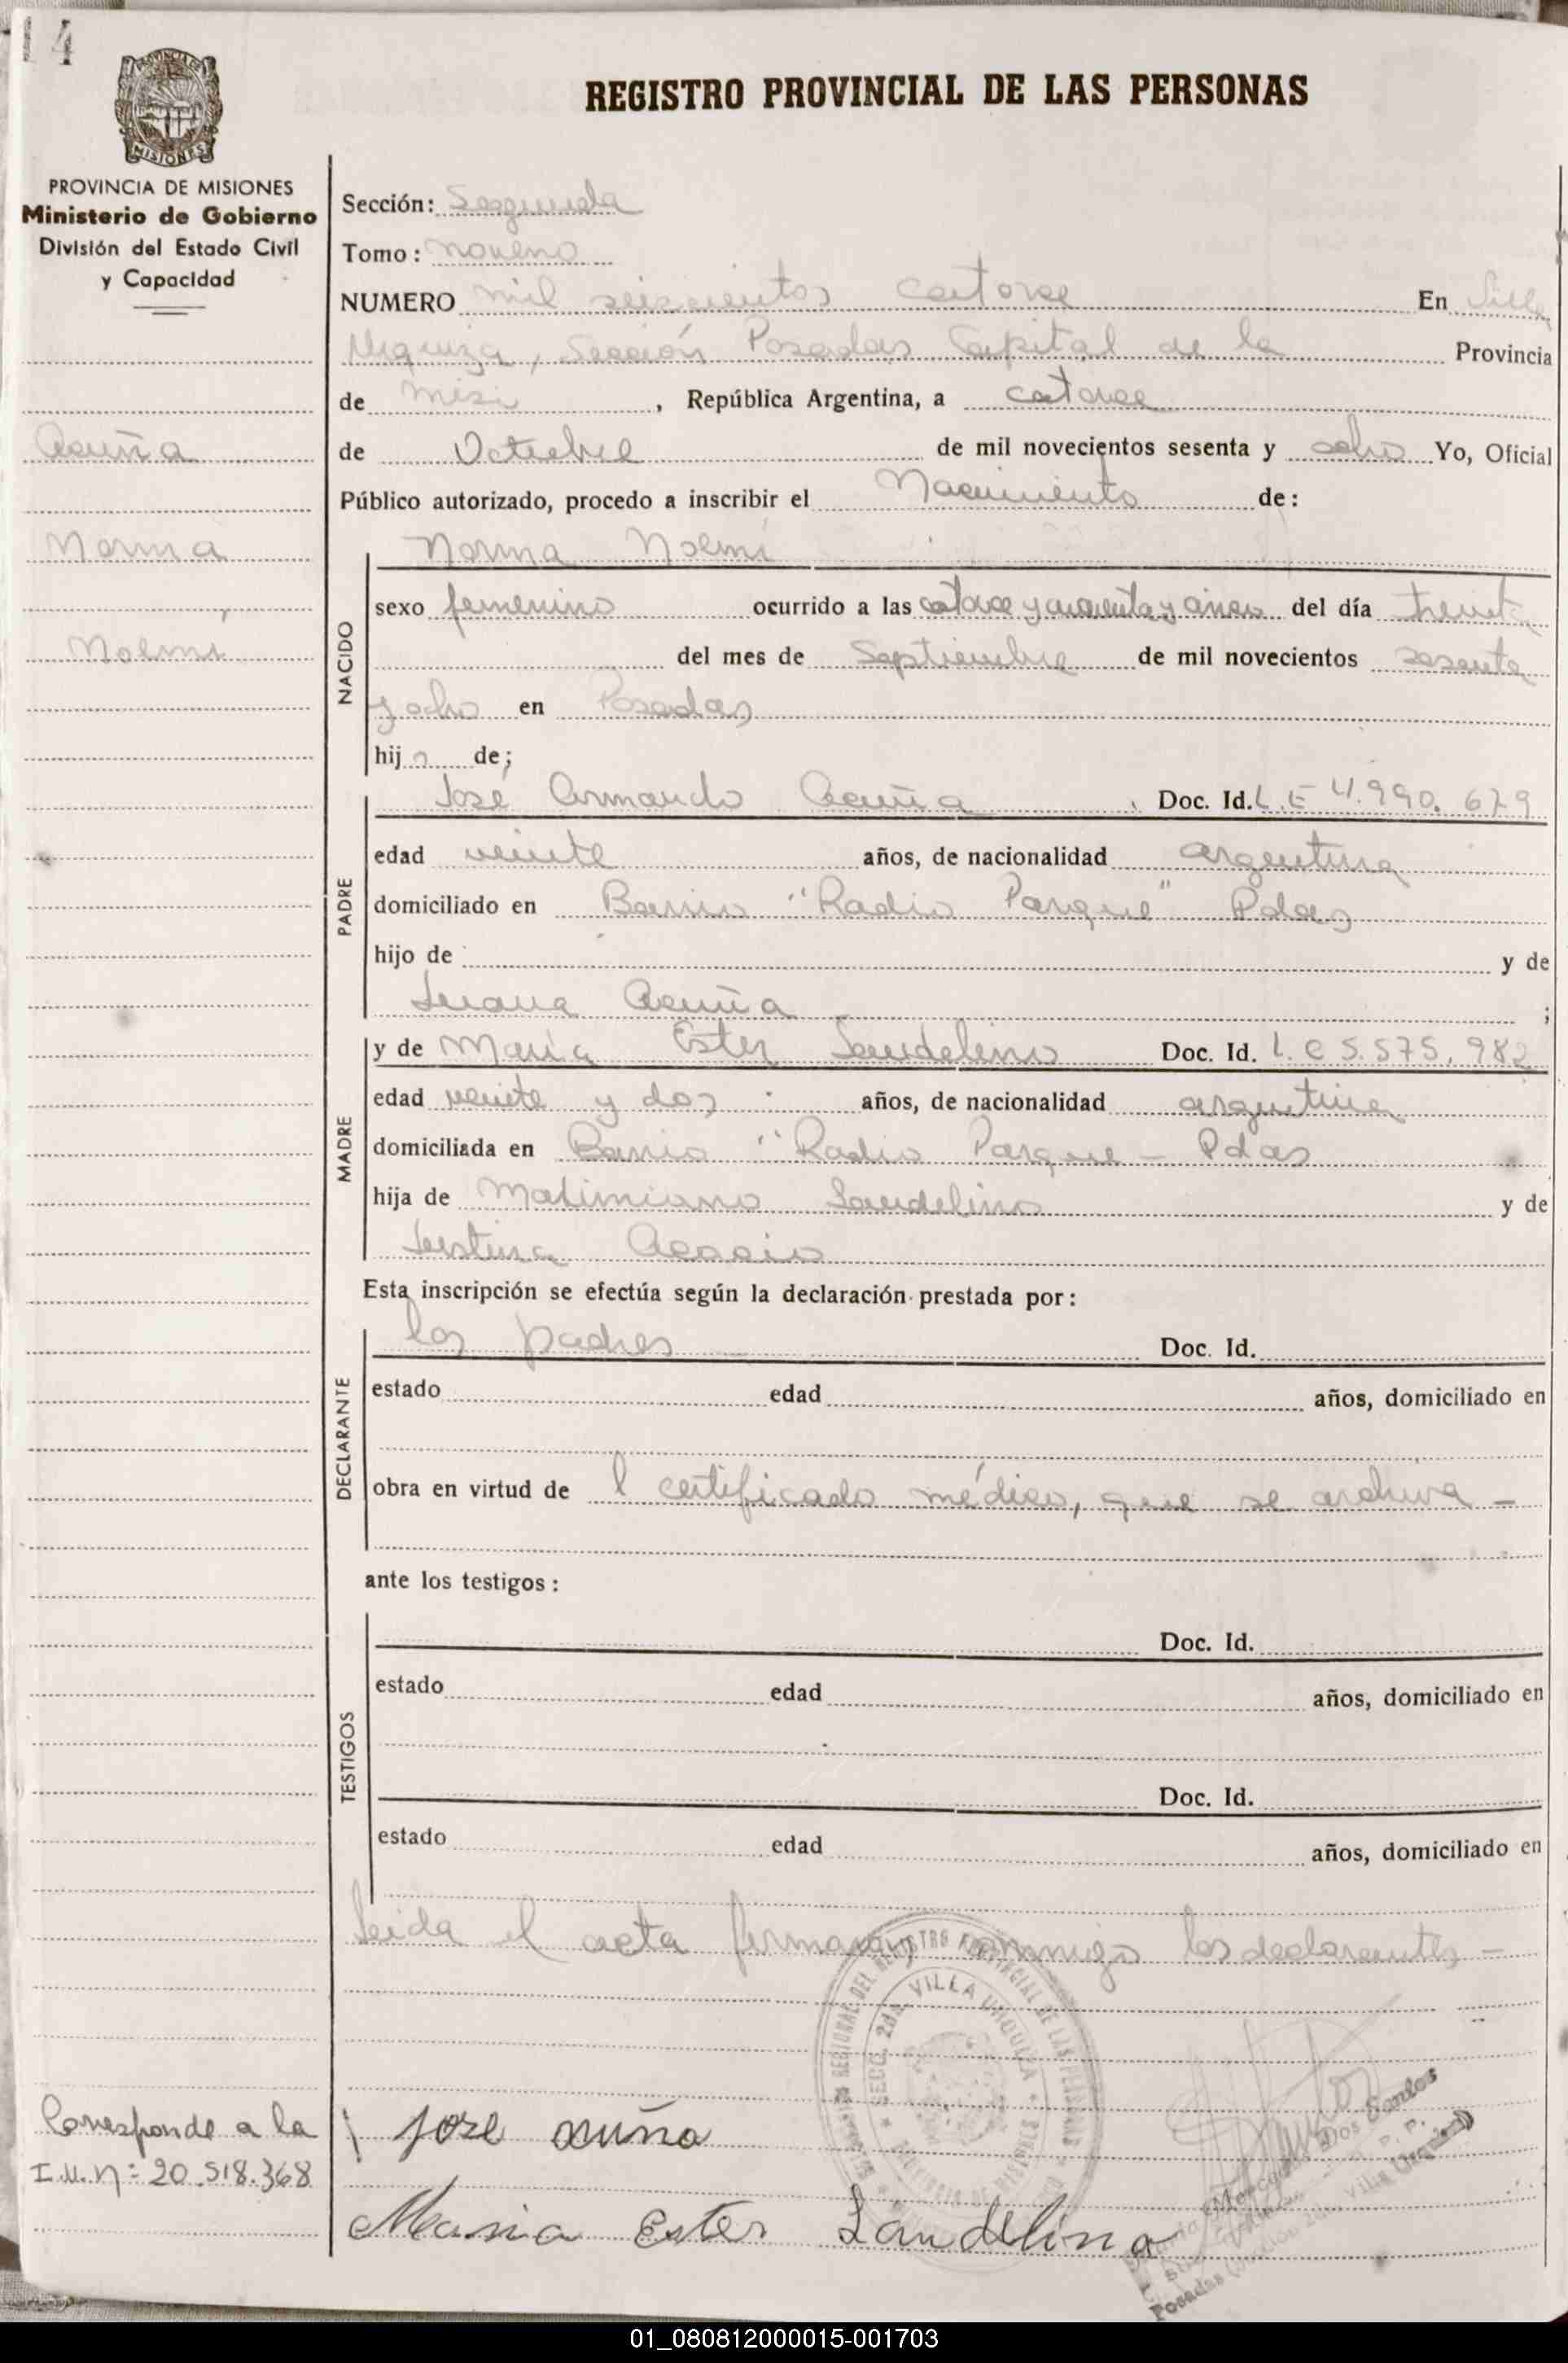 14
MISIONES
PROVINCIA DE MISIONES
Ministerio de Gobierno
División del Estado Civil
y Capacidad
REGISTRO PROVINCIAL DE LAS PERSONAS
Sección: Segunda
Tomo: noveno
NUMERO mil seiscientos catorce En Villa
Urquiza, Sección Posadas Capital de la Provincia
de Misi , República Argentina, a catorce
de Octubre de mil novecientos sesenta y ocho Yo, Oficial
Público autorizado, procedo a inscribir el Nacimiento de:
Acuña
Norma
Noemí
Norma Noemi
NACIDO
sexo femenino ocurrido a las catorce y cuarenta y cinco del día treinta
del mes de Septiembre de mil novecientos sesenta
y ocho en Posadas
hij a de;
PADRE
José Armando Acuña Doc. Id. L.E 4.990.679
edad veinte años, de nacionalidad argentina
domiciliado en Barrio "Radio Parque" Pdas
hijo de y de
Juana Acuña ;
MADRE
y de María Ester Landelino Doc. Id. L.C 5.575.982
edad veinte y dos años, de nacionalidad argentina
domiciliada en Barrio "Radio Parque - Pdas
hija de Landelino y de
Justina
Esta inscripción se efectúa según la declaración prestada por:
DECLARANTE
los padres Doc. Id.
estado edad años, domiciliado en
obra en virtud de l certificado médico, que se archiva -
ante los testigos:
TESTIGOS
Doc. Id.
estado edad años, domiciliado en
Doc. Id.
estado edad años, domiciliado en
Leida el acta firman conmigo los declarantes -
SECC. 2da. VILLA URQUIZA
PROVINCIA DE MISIONES
Corresponde a la
I.M. Nº 20.518.368
jose acuña
Maria Ester Landelino
Mercedes Dos Santos
Posadas Sección 2da. Villa Urquiza
01_080812000015-001703